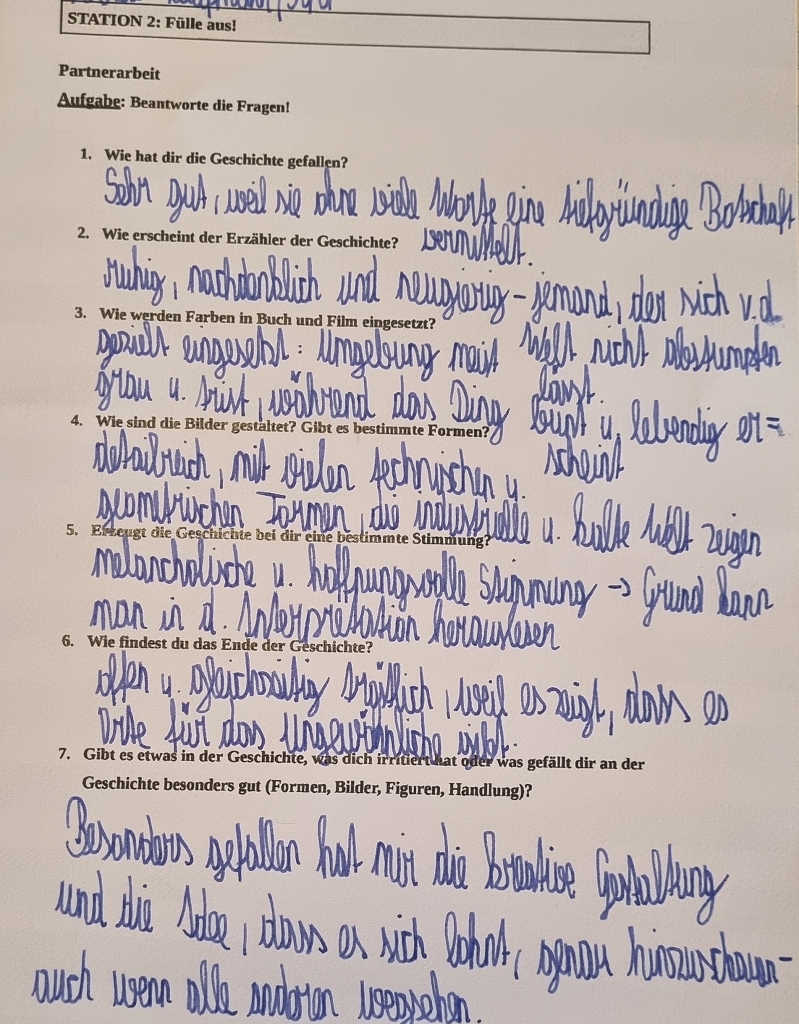 STATION 2: Fülle aus!
Partnerarbeit
Aufgabe: Beantworte die Fragen!
1. Wie hat dir die Geschichte gefallen?
Sehr gut, weil sie ohne viele Worte eine tiefgründige Botschaft
vermittelt.
2. Wie erscheint der Erzähler der Geschichte?
ruhig, nachdenklich und neugierig – jemand, der sich v.d.
Welt nicht abstumpfen
lässt.
3. Wie werden Farben in Buch und Film eingesetzt?
gezielt eingesetzt: Umgebung meist
grau u. trist, während das Ding bunt u. lebendig er=
scheint
4. Wie sind die Bilder gestaltet? Gibt es bestimmte Formen?
detailreich, mit vielen technischen u.
geometrischen Formen, die industrielle u. kalte Welt zeigen
5. Erzeugt die Geschichte bei dir eine bestimmte Stimmung?
melancholische u. hoffnungsvolle Stimmung -> Grund kann
man in d. Interpretation herauslesen
6. Wie findest du das Ende der Geschichte?
offen u. gleichzeitig tröstlich, weil es zeigt, dass es
Orte für das Ungewöhnliche gibt.
7. Gibt es etwas in der Geschichte, was dich irritiert hat oder was gefällt dir an der
Geschichte besonders gut (Formen, Bilder, Figuren, Handlung)?
Besonders gefallen hat mir die kreative Gestaltung
und die Idee, dass es sich lohnt, genau hinzuschauen –
auch wenn alle anderen wegsehen.